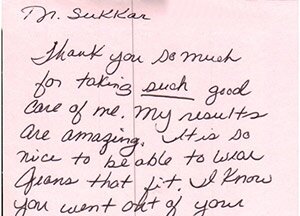 Dr. Sukkar
Thank you so much
for taking such good
care of me. My results
are amazing. It is so
nice to be able to wear
jeans that fit. I know
you went out of your